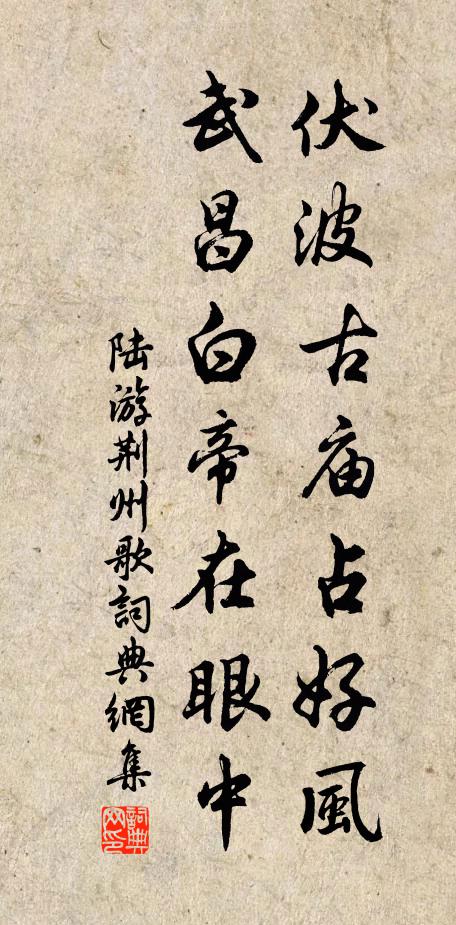 伏波古庙占好風
武昌白帝在眼中
陆游荆州歌詞典網集
詞典网印